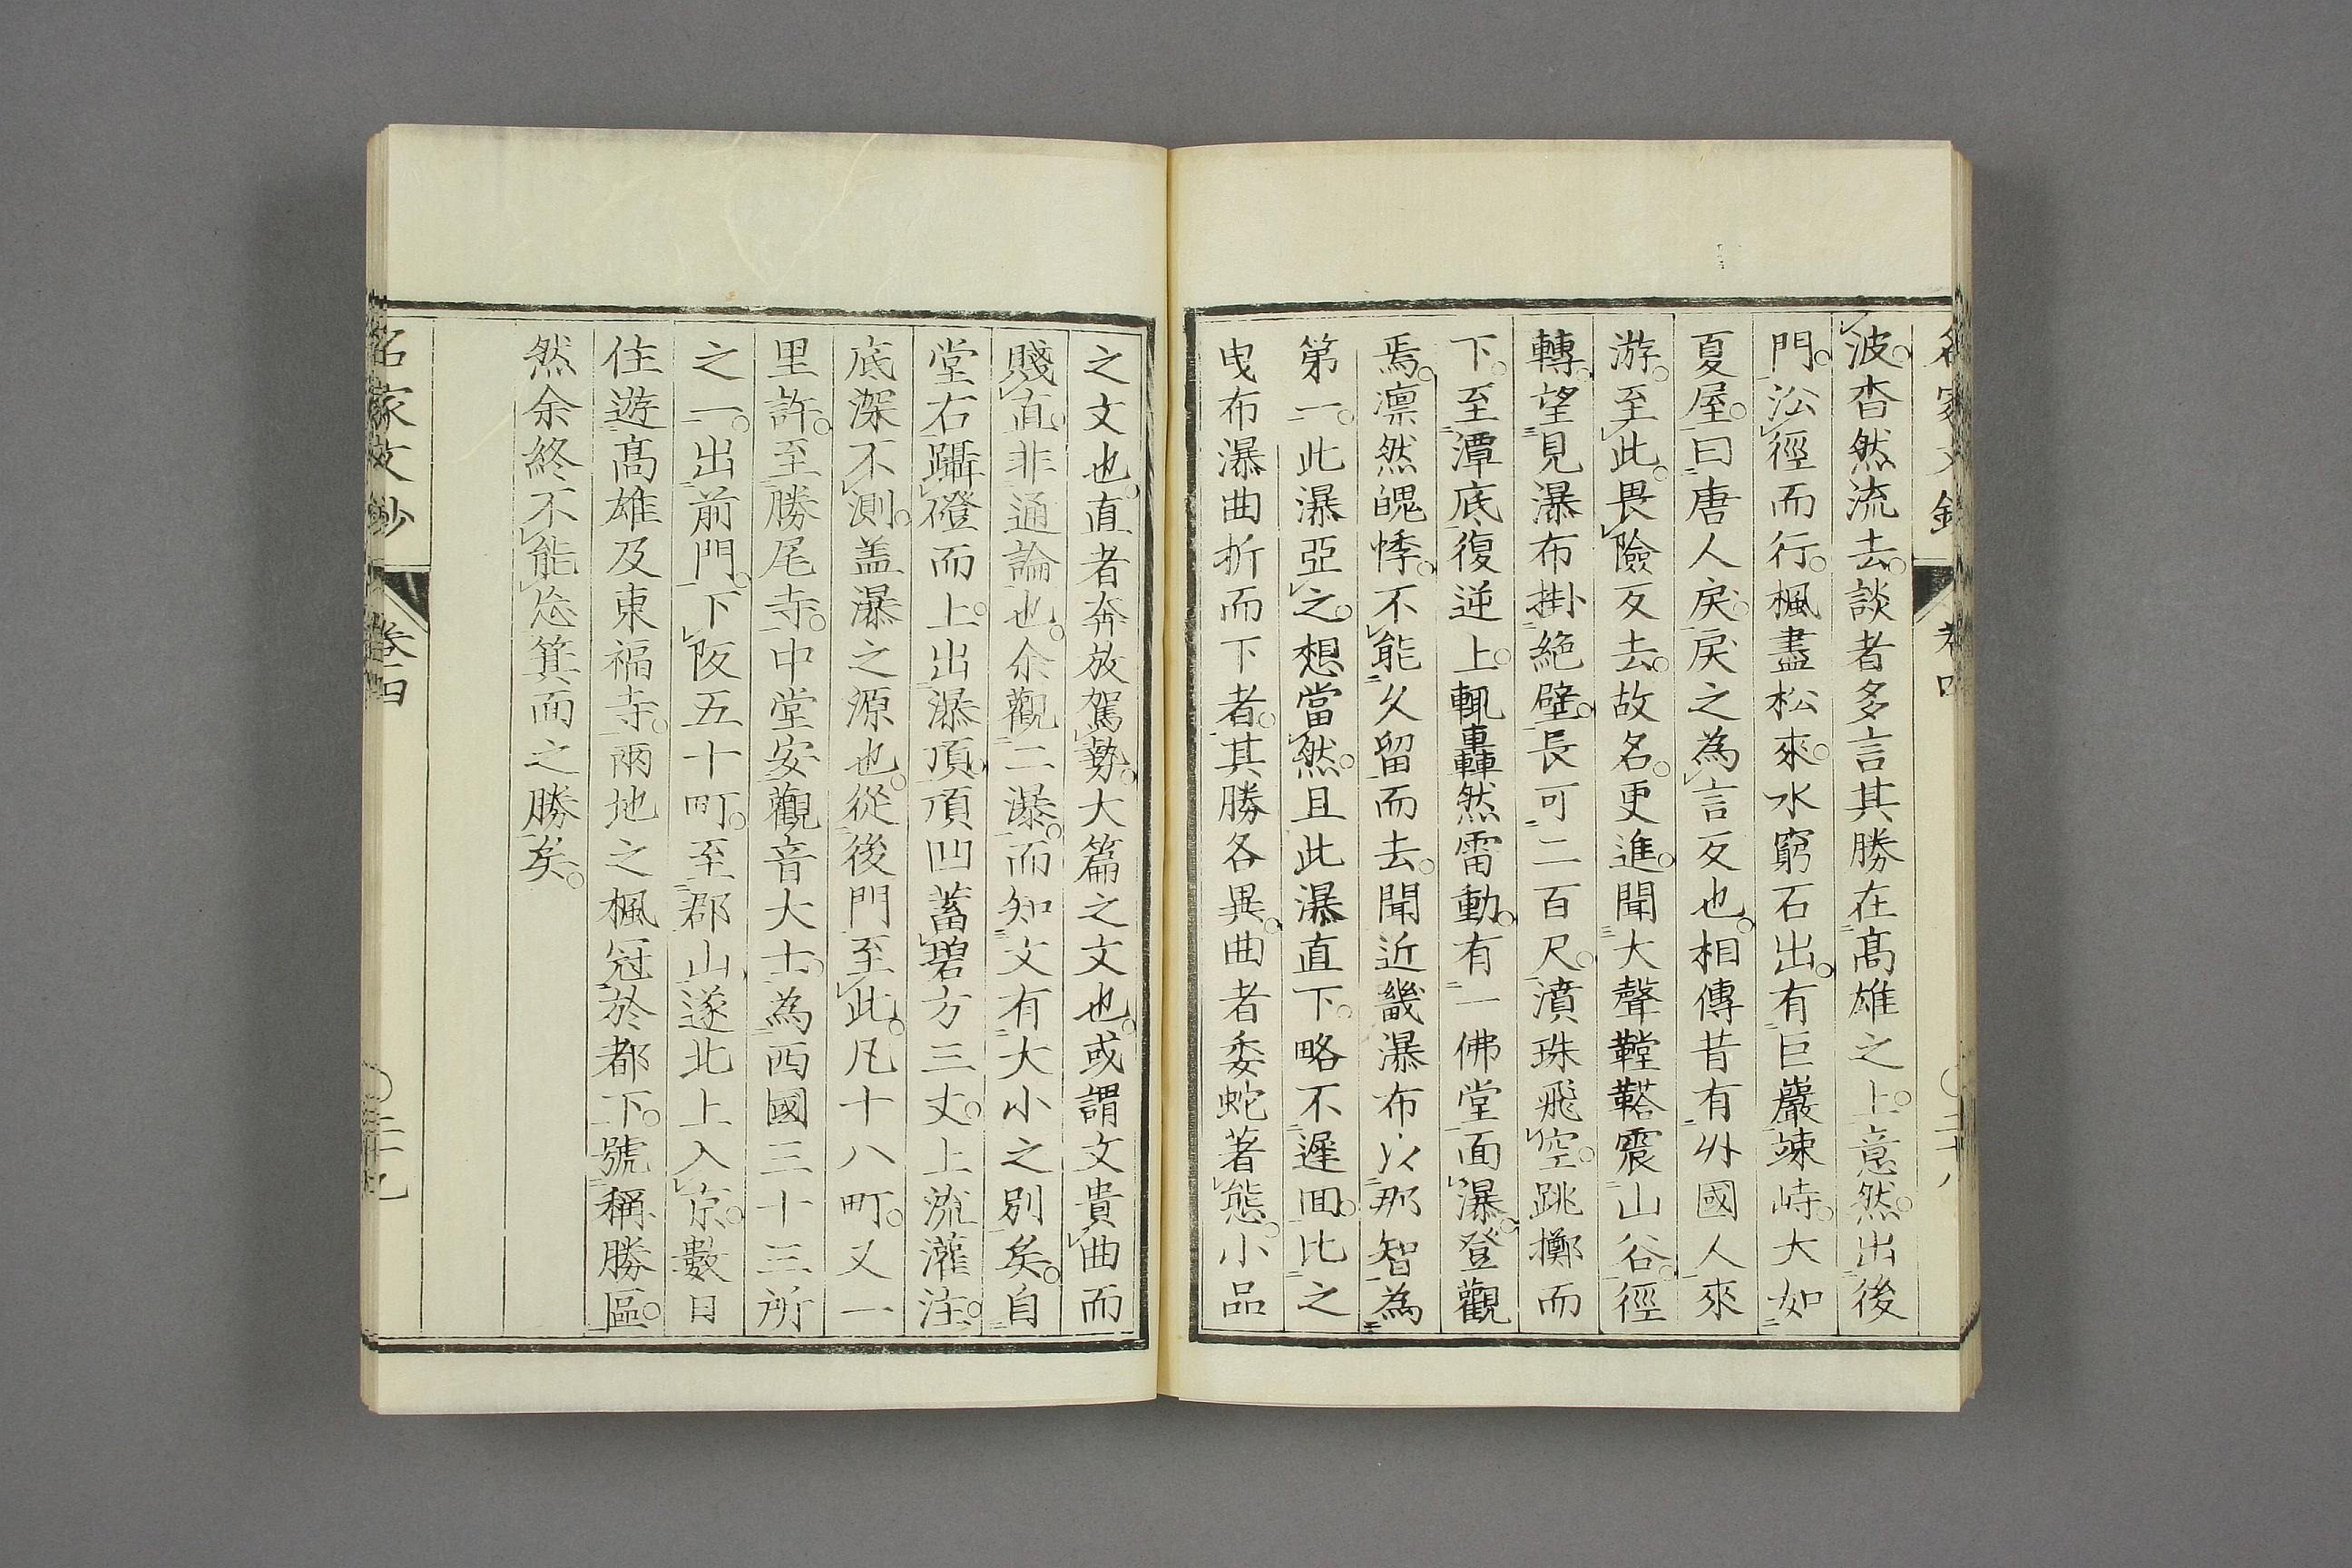 名家文鈔 卷四 二十八
波杳然流去談者多言其勝在髙雄之上意然出後
門㳂徑而行楓盡松來水窮石出有巨巖竦峙大如
夏屋曰唐人戾戾之為言反也相傳昔有外國人來
游至此畏險反去故名更進聞大聲鞺鞳震山谷徑
轉望見瀑布掛絶壁長可二百尺濆珠飛空跳擲而
下至潭底復逆上輒轟然雷動有一佛堂面瀑登觀
焉凛然魄悸不能久留而去聞近畿瀑布以那智為
第一此瀑亞之想當然且此瀑直下略不遲囬比之
曳布瀑曲折而下者其勝各異曲者委蛇著態小品
之文也直者奔放駕勢大篇之文也或謂文貴曲而
賤直非通論也余觀二瀑而知文有大小之別矣自
堂右躡磴而上出瀑頂頂凹蓄碧方三丈上流灌注
底深不測盖瀑之源也從後門至此凡十八町又一
里許至勝尾寺中堂安觀音大士為西國三十三所
之一出前門下阪五十町至郡山遂北上入京數日
徃遊髙雄及東福寺兩地之楓冠於都下號稱勝區
然余終不能忘箕面之勝矣
名家文鈔 卷四 二十九